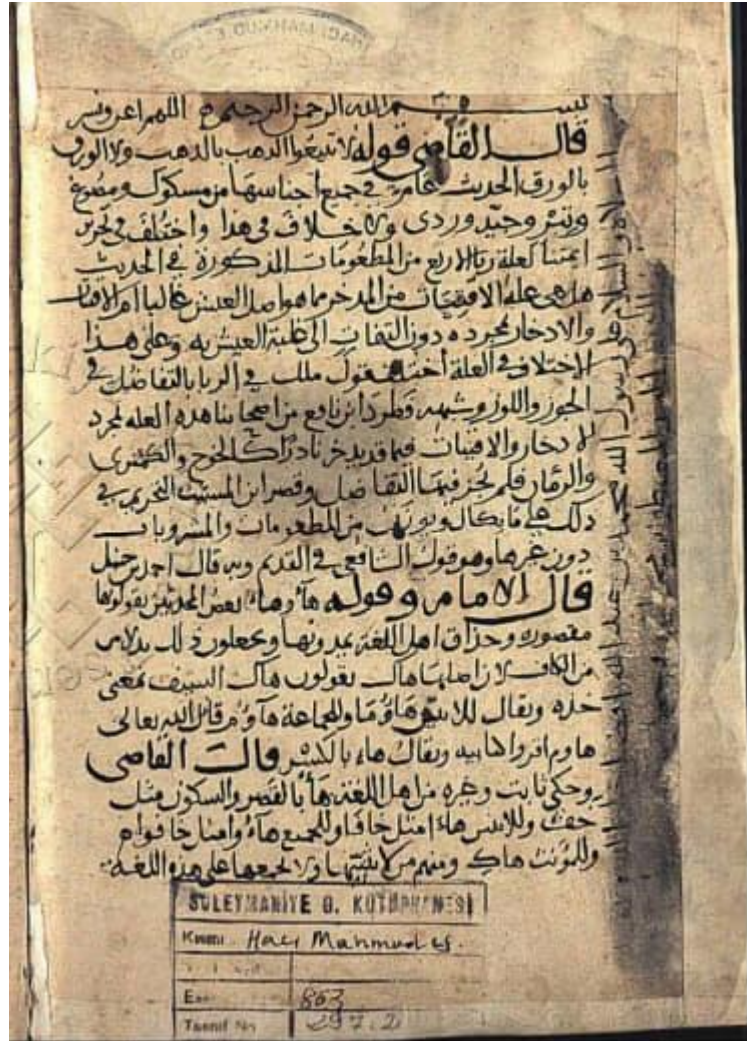 بسم الله الرحمن الرحيم اللهم اعن ويسر
قال القاضي قوله لا تبيعوا الذهب بالذهب ولا الورق
بالورق الحديث عامة في جميع اجناسها من مسكوك ومصوغ
وتبر وجيد وردي ولا خلاف في هذا واختلف في تحرير
ايمتنا لعلة ربا الاربع من المطعومات المذكورة في الحديث
هل هي علة الاقتيات من المدخر مما هو اصل العيش غالبا ام الاقتيات
والادخار بمجرده دون التفات الى غلبة العيش به وعلى هذا
الاختلاف في العلة اختلف قول ملك في الربا بالتفاضل في
الجوز واللوز وشبهه وطرد ابن نافع من اصحابنا هذه العلة لمجرد
الادخار والاقتيات فيما قد يدخر نادرا كالخوخ والكمثرى
والرمان فلم يجز فيها التفاضل وقصر ابن المسيب التحريم في
ذلك على ما يكال ويوزن من المطعومات والمشروبات
دون غيرها وهو قول الشافعي في القديم وبه قال احمد بن حنبل
قال الامام وقوله هاء وهاء بعض المحدثين يقولونها
مقصوره وحذاق اهل اللغة يمدونها ويجعلون ذلك بدلا
من الكاف لان اصلها هاك يقولون هاك السيف بمعنى
خذه ويقال للاثنين هاؤما وللجماعة هاؤم قال الله تعالى
هاؤم اقروا كتابيه ويقال هاء بالكسر قال القاضي
وحكى ثابت وغيره من اهل اللغة هأ بالقصر والسكون مثل
خف وللاثنين هاءا مثل خافا وللجميع هاؤا مثل خافوا
وللمؤنث هاك ومنهم من لا يثنيها ولا يجمعها على هذه اللغة
SÜLEYMANİYE G. KÜTÜPHANESİ
Kısmı Hacı Mahmud ef.
863
Tasnif No 297.2